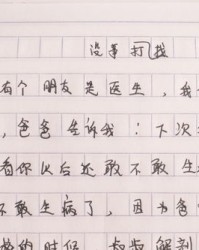 没事打找
有个朋友是医生,我
,爸爸告诉我:下次
看你以后还敢不敢生
不敢生病了,因为爸
的时候 叔叔解剖